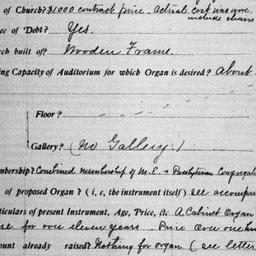 of Church? $1000 contract price. Actual cost was more.
include chairs
ee of Debt? Yes.
rch built of? Wooden Frame.
ng Capacity of Auditorium for which Organ is desired? About
Floor?
Gallery? (No Gallery.)
mbership? Combined membership of M.E. + Presbyterian Congregat
of proposed Organ? ( i, e, the instrument itself) See accompan
ticulars of present Instrument, Age, Price, &c. A Cabinet Organ
se for over eleven years. Price over one hun
ount already raised? Nothing for organ (see letter